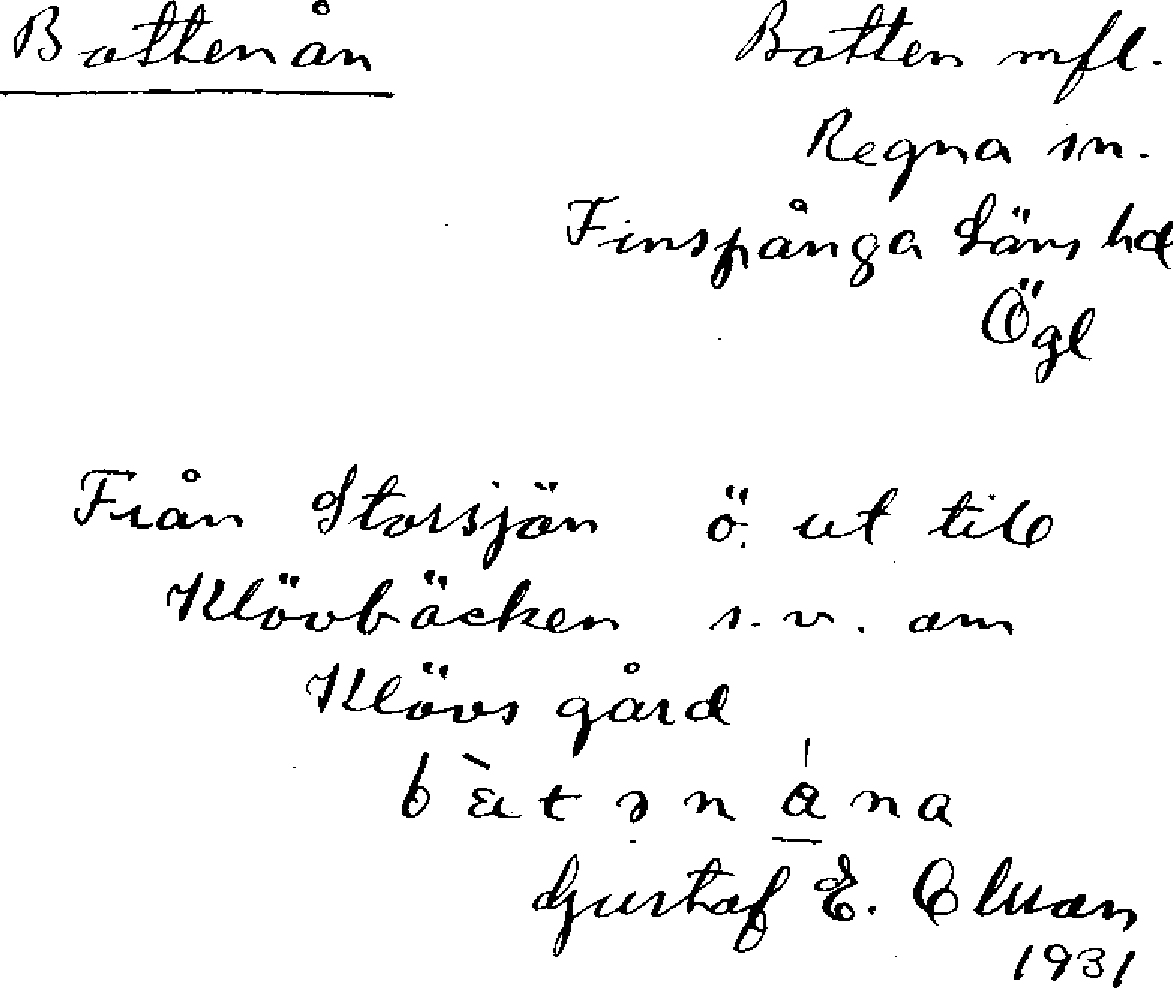 Bottenån
Botten mfl.
Regna sn.
Finspånga läns hd
Ögl
Från Storsjön ö. ut till
Klövbäcken s.v. om
Klövs gård
Gustaf E.
1931